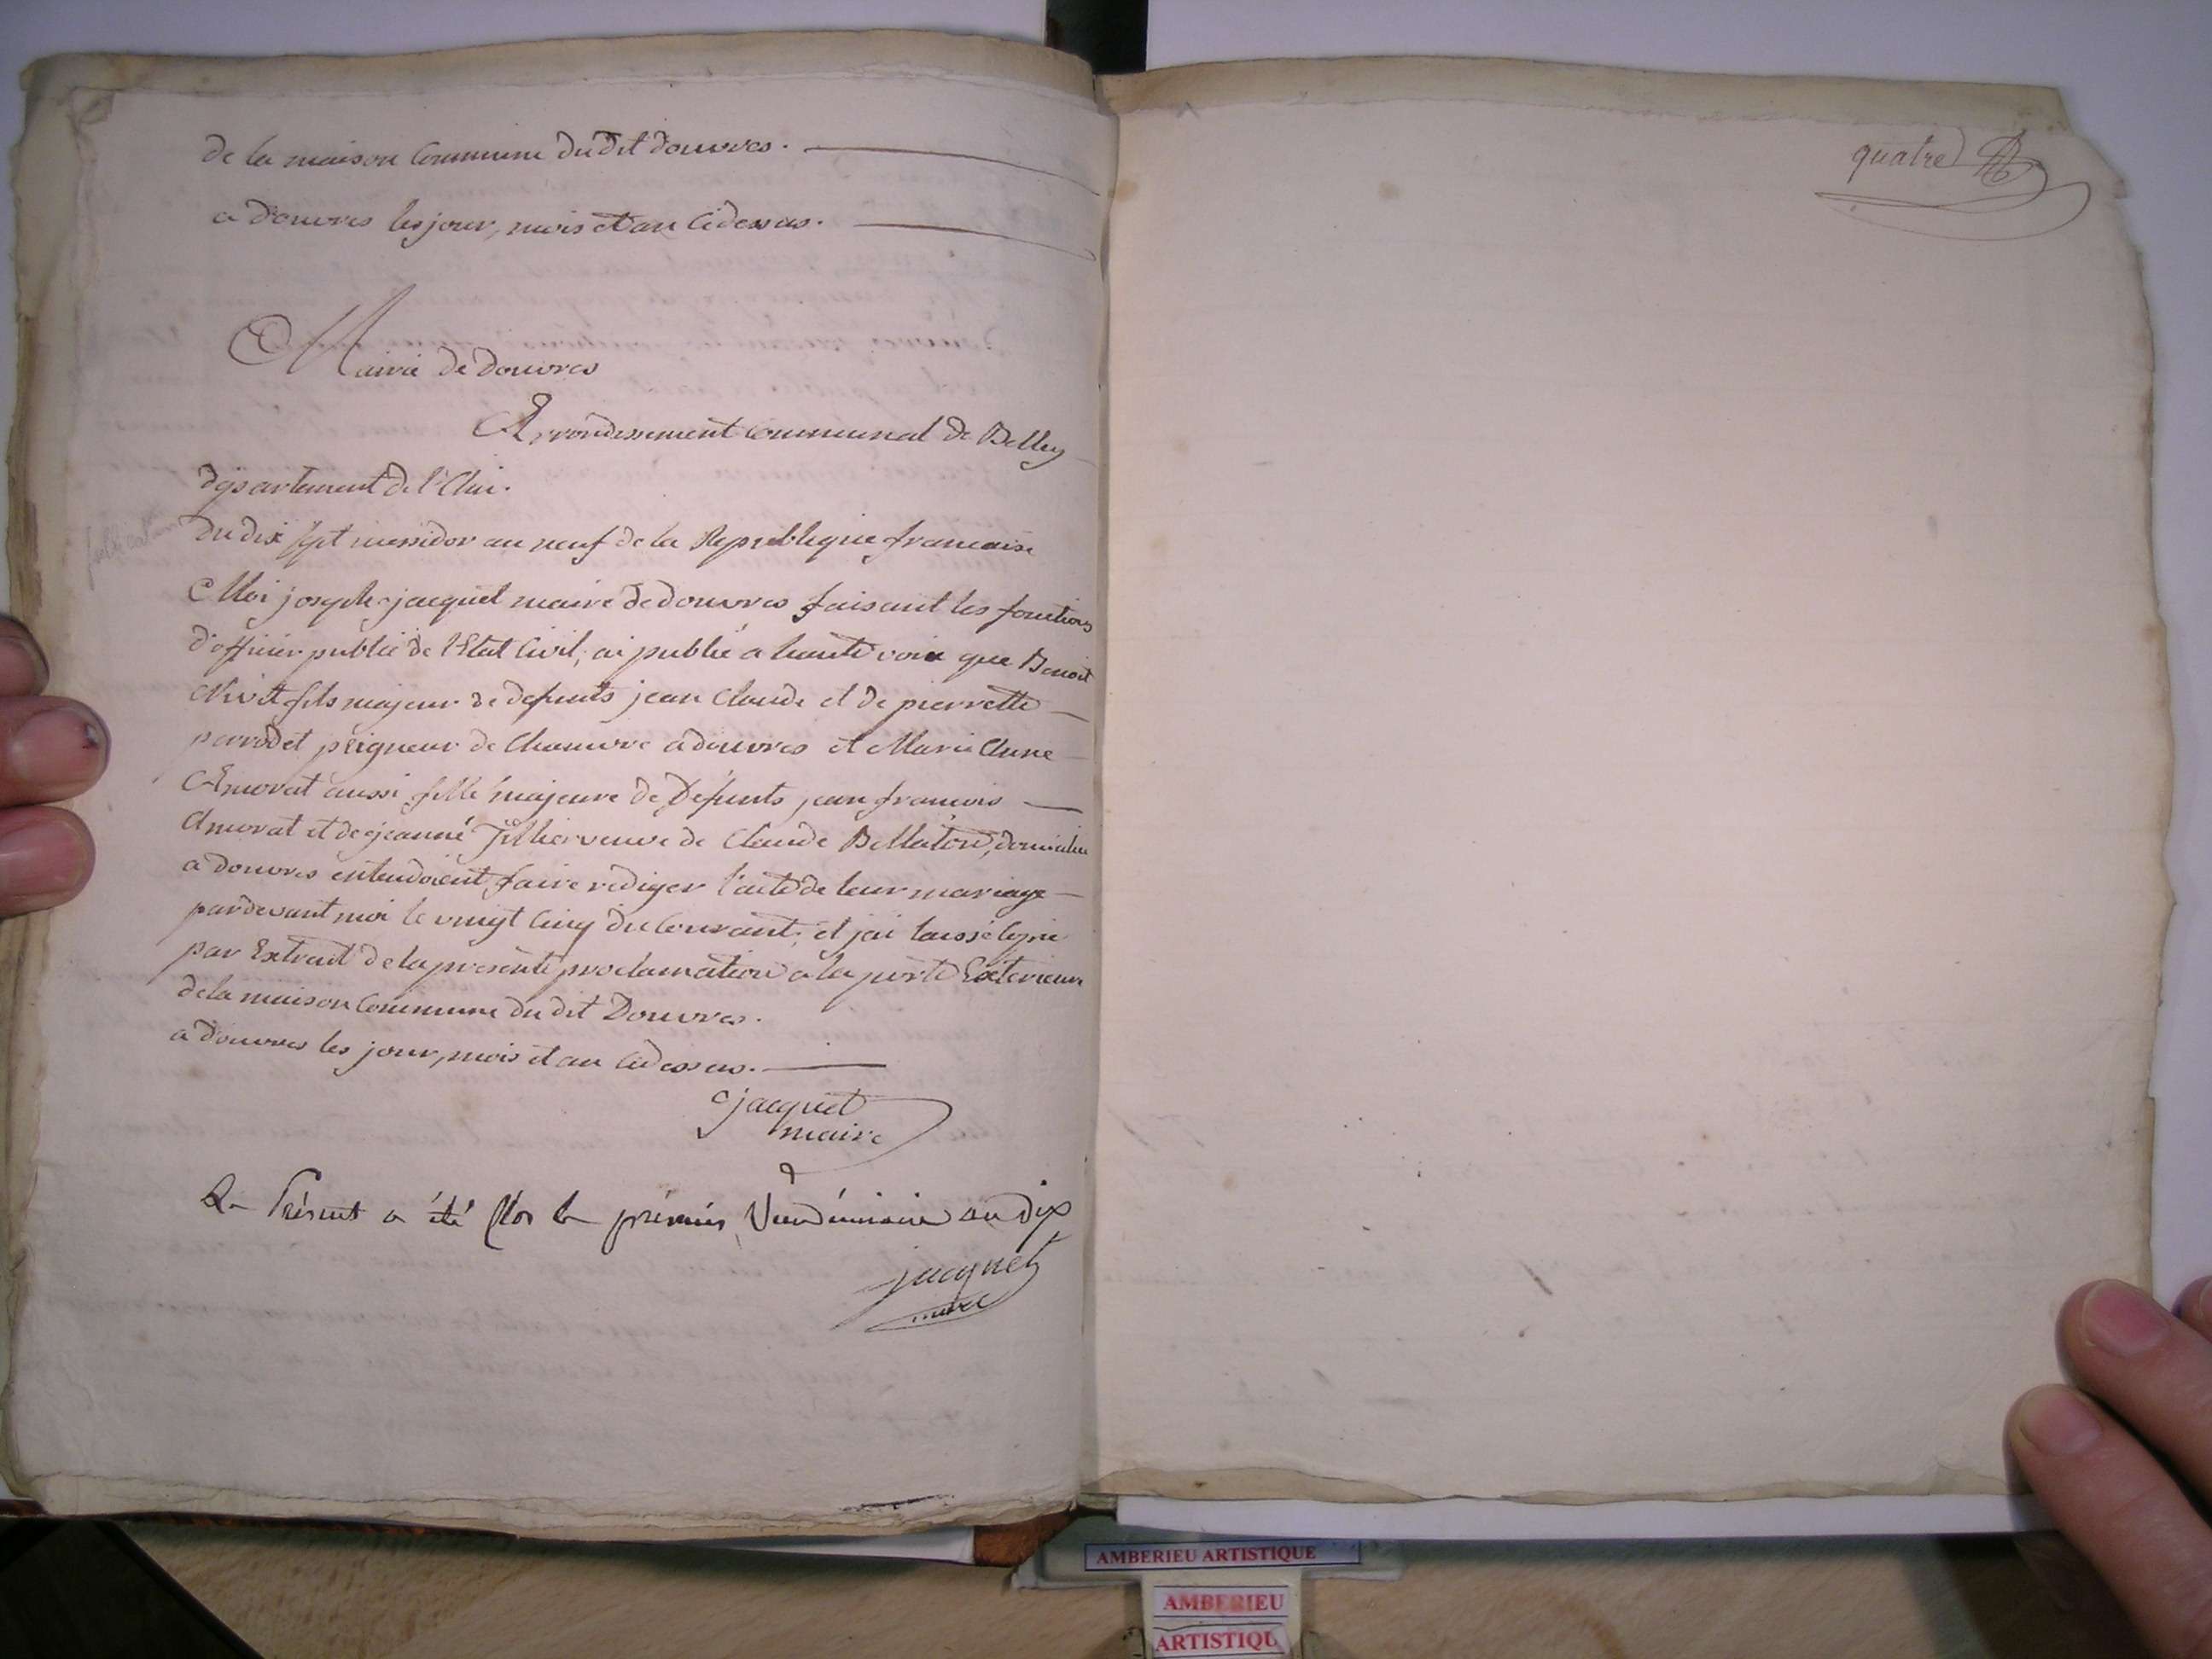 de la maison Commune du dit douvres.
a douvres les jour, mois et an Cidessus.
Mairie de Douvres
Arrondissement Communal de Belley
département de l'Ain.
publication
Du dix sept messidor an neuf de la Republique francaise
Moi joseph jacquet maire de douvres faisant les fonctions
d'officier public de l'Etat Civil, ai publié a haute voix que Benoit
fils majeur de defunts jean Claude et de pierrette
perrodet peigneur de Chanvre a douvres et Marie Anne
Amorat aussi fille majeure de Défunts jean francois
Amorat et de jeanne veuve de Claude Bellaton, domicilié
a douvres entendoient faire rediger l'acte de leur mariage
pardevant moi le vingt Cinq du Courant; et jai laissé Copie
par Extrait de la presente proclamation a la porte Exterieure
de la maison Commune du dit Douvres.
a Douvres les jour, mois et an Cidessus.
jacquet
maire
Le Présent a été Clos le prémier Vendémiaire an dix
jacquet
maire
quatre
AMBERIEU ARTISTIQUE
AMBERIEU
ARTISTIQU